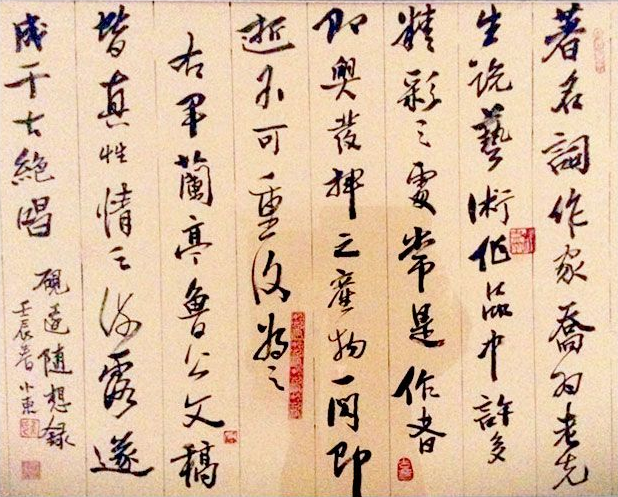 著名詞作家喬羽老先
生説藝術作品中許多
精彩之處常是作者
即興發揮之産物一閃即
逝不可重復為之
右軍蘭亭魯公文稿
皆真性情之流露遂
成千古絕唱
硯邊隨想録
壬辰春小東